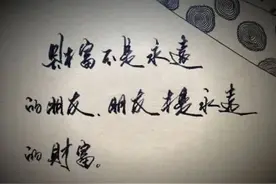 财富不是永远
的朋友、朋友才是永远
的财富。